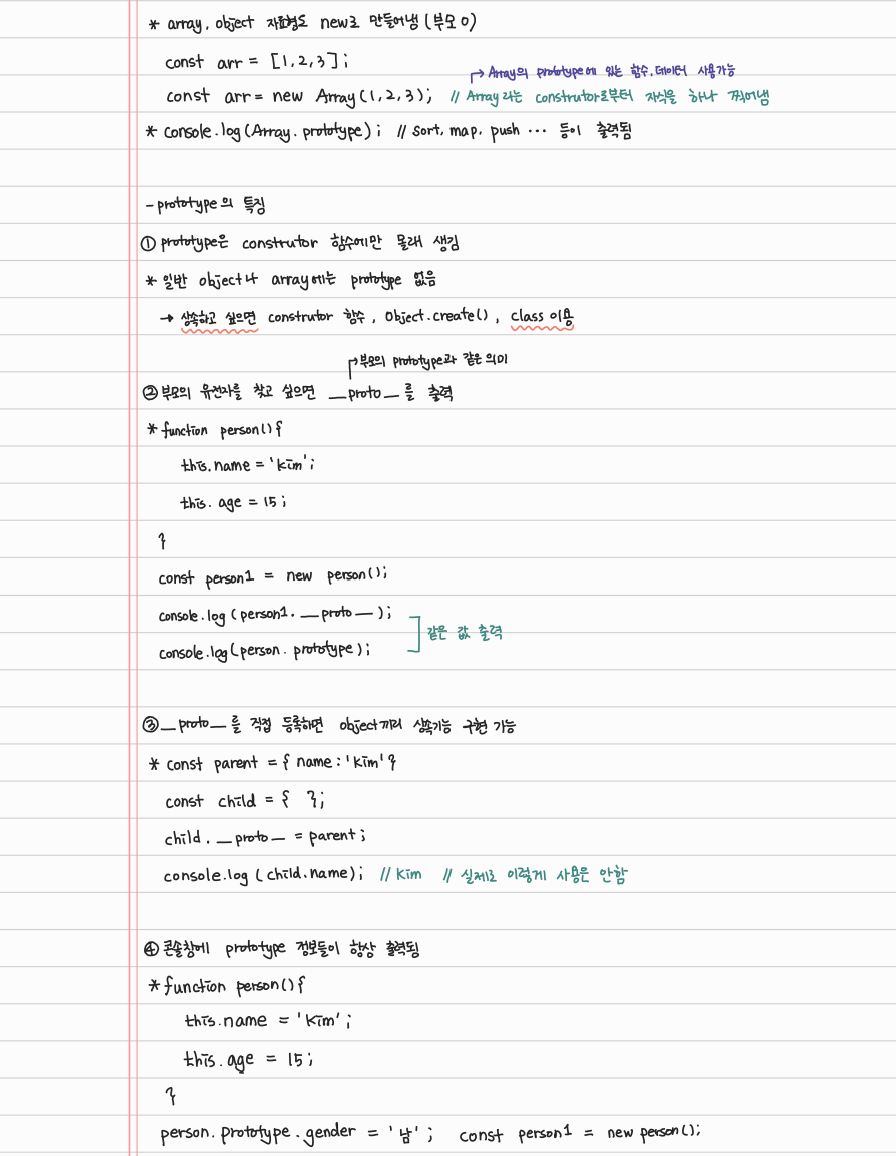 * array, object 자료형도 new로 만들어냄 (부모 O)
const arr = [1, 2, 3];
↱ Array의 prototype에 있는 함수, 데이터 사용가능
const arr = new Array(1, 2, 3); // Array라는 construtor로부터 자식을 하나 찍어냄
* console.log(Array.prototype); // sort, map, push ··· 등이 출력됨
- prototype의 특징
① prototype은 construtor 함수에만 몰래 생김
* 일반 object나 array에는 prototype 없음
→ 상속하고 싶으면 construtor 함수, Object.create(), class 이용
↱ 부모의 prototype과 같은 의미
② 부모의 유전자를 찾고 싶으면 __proto__를 출력
* function person(){
this.name = 'kim';
this.age = 15;
}
const person1 = new person();
console.log(person1.__proto__);
같은 값 출력
console.log(person.prototype);
③ __proto__를 직접 등록하면 object끼리 상속기능 구현 가능
* const parent = { name : 'kim' }
const child = { };
child.__proto__ = parent;
console.log(child.name); // kim // 실제로 이렇게 사용은 안함
④ 콘솔창에 prototype 정보들이 항상 출력됨
* function person(){
this.name = 'kim';
this.age = 15;
}
person.prototype.gender = '남'; const person1 = new person();